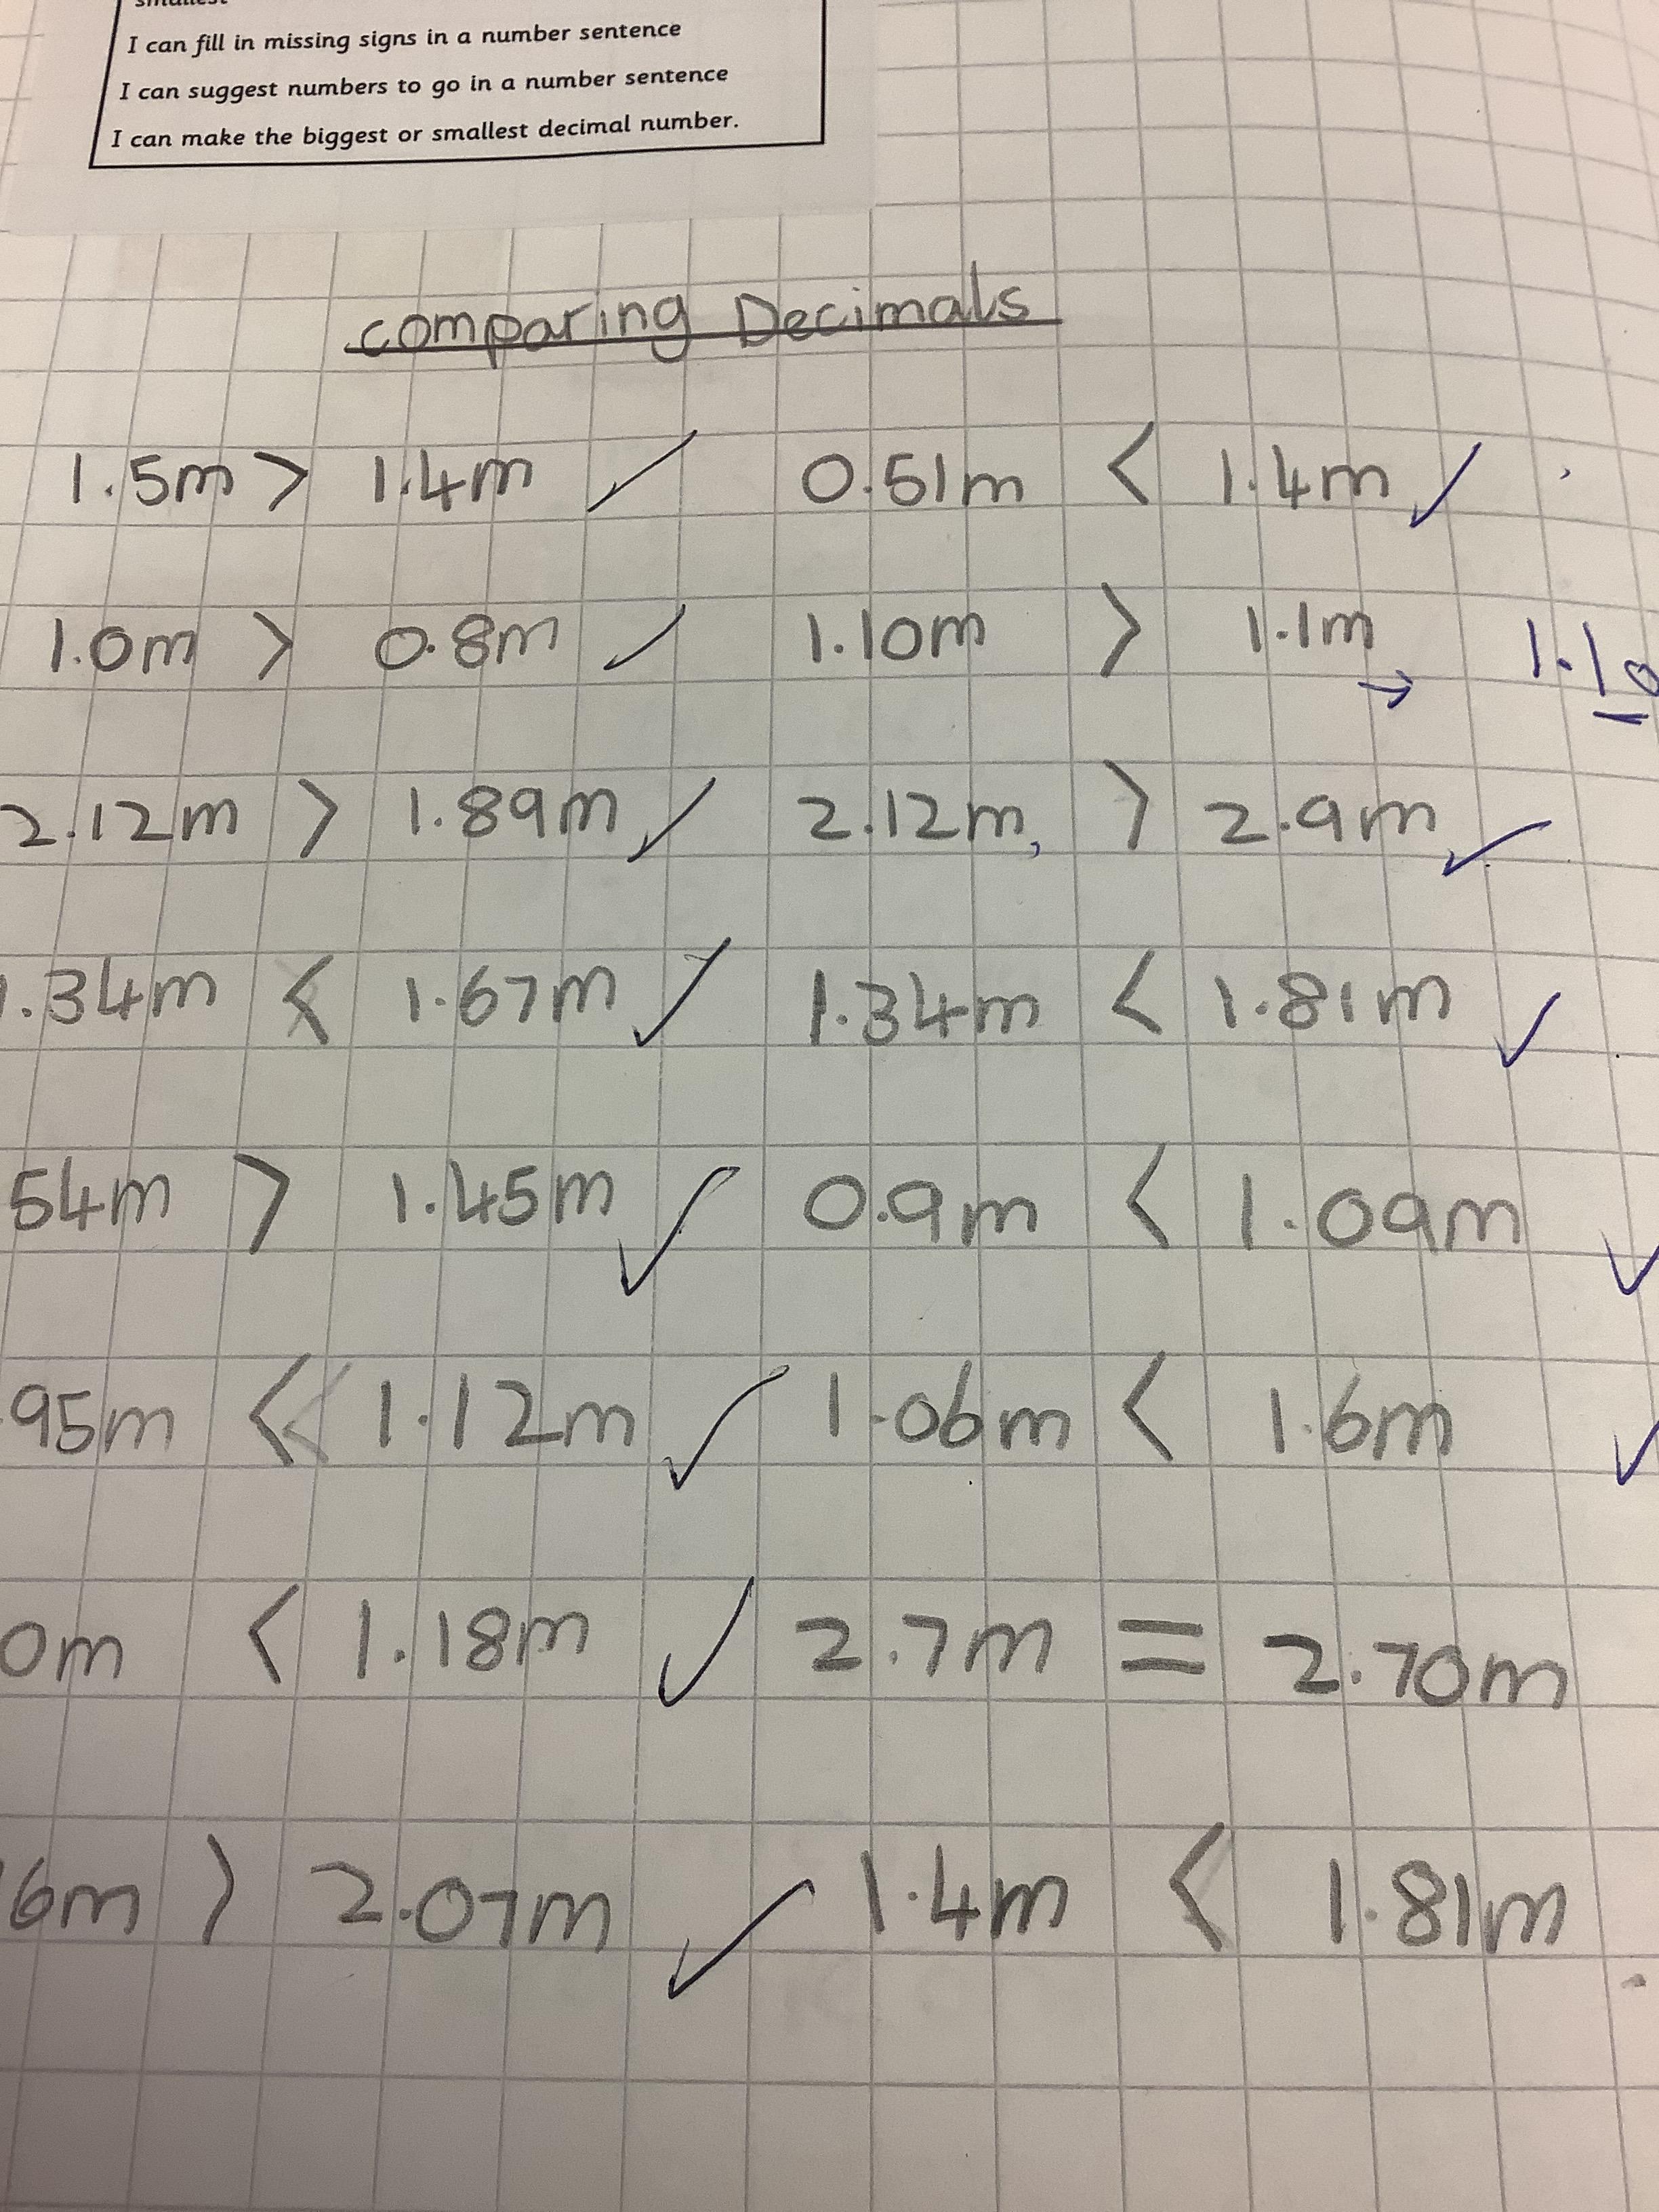 I can fill in missing signs in a number sentence
I can suggest numbers to go in a number sentence
I can make the biggest or smallest decimal number.
comparing Decimals
1.5m > 1.4m ✓ 0.51m < 1.4m ✓
1.0m > 0.8m ✓ 1.10m > 1.1m → 1.10
2.12m > 1.89m ✓ 2.12m > 2.9m ✓
1.34m < 1.67m ✓ 1.34m < 1.81m ✓
54m > 1.45m ✓ 0.9m < 1.09m ✓
95m < 1.12m ✓ 1.06m < 1.6m ✓
0m < 1.18m ✓ 2.7m = 2.70m
6m > 2.07m ✓ 1.4m < 1.81m